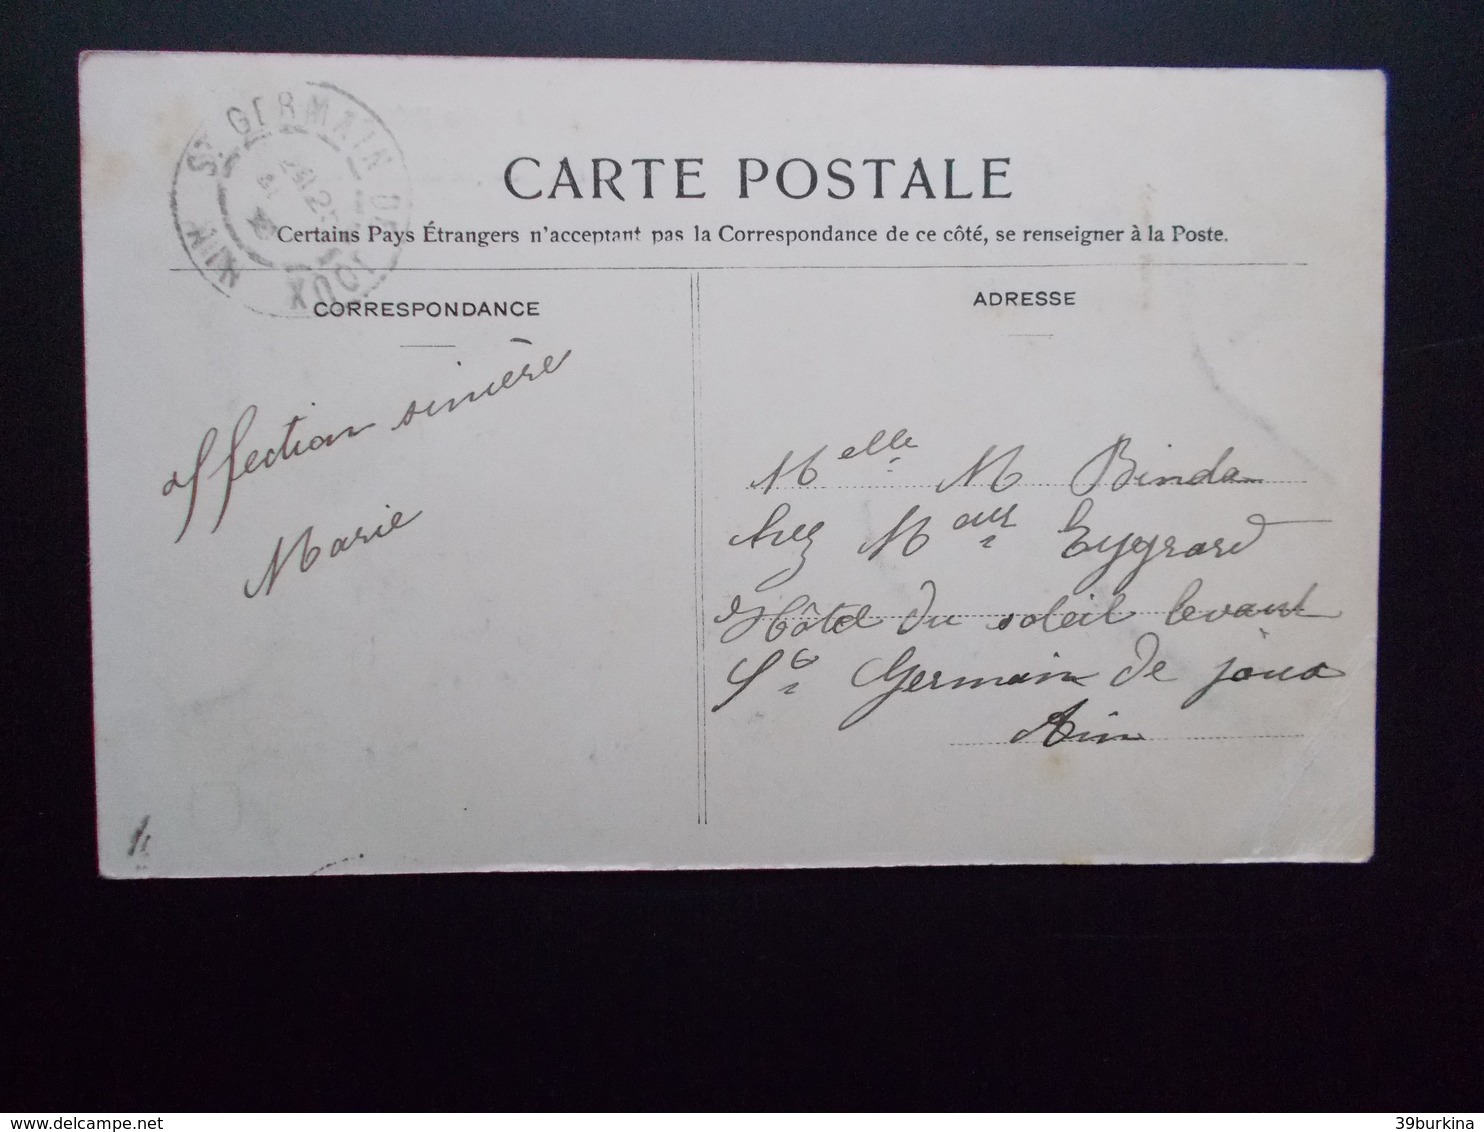 ST GERMAIN DE JOUX
AIN
CARTE POSTALE
Certains Pays Étrangers n'acceptant pas la Correspondance de ce côté, se renseigner à la Poste.
CORRESPONDANCE
affection sincère
Marie
ADRESSE
Melle M Binda
chez Mme Eygrard
Hôtel du soleil levant
St Germain de joux
Ain
www.delcampe.net
39burkina